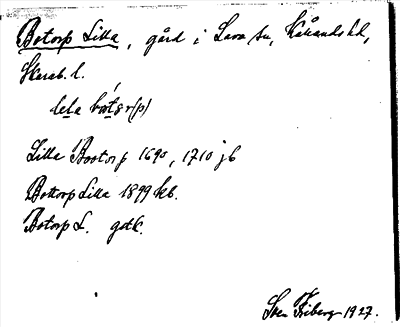 Botorp Lilla, gård i Lava sn, Kållands hd,
Skarab. l.
lela
Lilla Bootorp 1690, 1710 jb
Bottorp Lilla 1899 kb.
Botorp L. gstk.
Sven Friberg 1927.